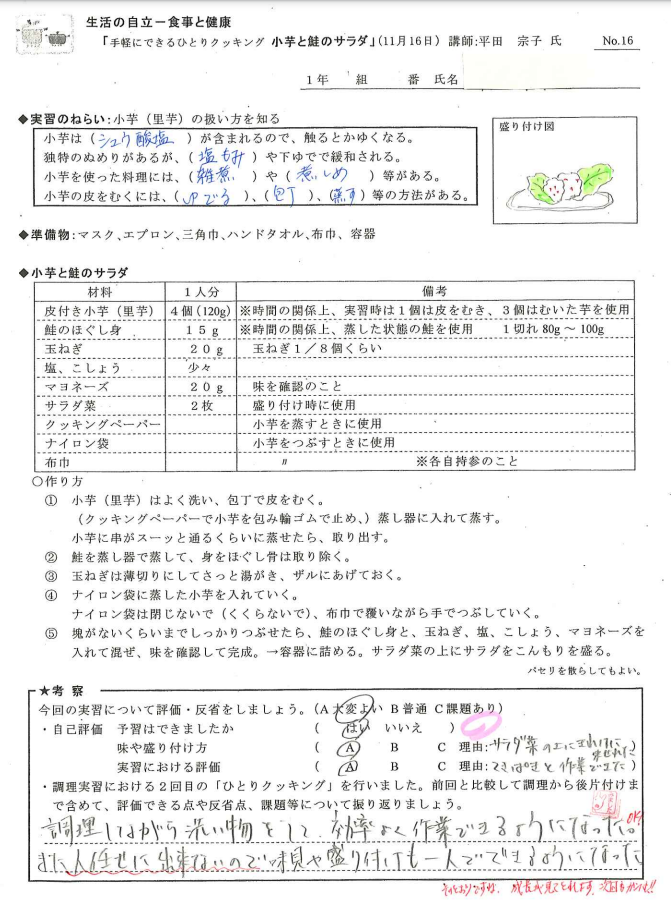 生活の自立－食事と健康
「手軽にできるひとりクッキング 小芋と鮭のサラダ」(11月16日) 講師:平田 宗子 氏 No.16
1年 組 番 氏名
◆実習のねらい:小芋（里芋）の扱い方を知る
小芋は（シュウ酸塩）が含まれるので、触るとかゆくなる。
独特のぬめりがあるが、（塩もみ）や下ゆでで緩和される。
小芋を使った料理には、（雑煮）や（煮しめ）等がある。
小芋の皮をむくには、（ゆでる）、（包丁）、（蒸す）等の方法がある。
盛り付け図
◆準備物:マスク、エプロン、三角巾、ハンドタオル、布巾、容器
◆小芋と鮭のサラダ
材料 1人分 備考
皮付き小芋（里芋） 4個（120g） ※時間の関係上、実習時は1個は皮をむき、3個はむいた芋を使用
鮭のほぐし身 15g ※時間の関係上、蒸した状態の鮭を使用 1切れ 80g～100g
玉ねぎ 20g 玉ねぎ1／8個くらい
塩、こしょう 少々
マヨネーズ 20g 味を確認のこと
サラダ菜 2枚 盛り付け時に使用
クッキングペーパー 小芋を蒸すときに使用
ナイロン袋 小芋をつぶすときに使用
布巾 〃 ※各自持参のこと
○作り方
① 小芋（里芋）はよく洗い、包丁で皮をむく。
（クッキングペーパーで小芋を包み輪ゴムで止め、）蒸し器に入れて蒸す。
小芋に串がスーッと通るくらいに蒸せたら、取り出す。
② 鮭を蒸し器で蒸して、身をほぐし骨は取り除く。
③ 玉ねぎは薄切りにしてさっと湯がき、ザルにあげておく。
④ ナイロン袋に蒸した小芋を入れていく。
ナイロン袋は閉じないで（くくらないで）、布巾で覆いながら手でつぶしていく。
⑤ 塊がないくらいまでしっかりつぶせたら、鮭のほぐし身と、玉ねぎ、塩、こしょう、マヨネーズを
入れて混ぜ、味を確認して完成。→容器に詰める。サラダ菜の上にサラダをこんもりを盛る。
パセリを散らしてもよい。
★考 察
今回の実習について評価・反省をしましょう。（A 大変よい B 普通 C 課題あり）
・自己評価 予習はできましたか （ はい いいえ ）
味や盛り付け方 （ A B C 理由:サラダ菜の上にきれいに）
実習における評価 （ A B C 理由:てきぱきと作業できた）
・調理実習における2回目の「ひとりクッキング」を行いました。前回と比較して調理から後片付けま
で含めて、評価できる点や反省点、課題等について振り返りましょう。
調理しながら洗い物をして、効率よく作業できるようになった。
また人任せに出来ないので味見や盛り付けも一人でできるようになった
そのとおりですね。成長が見てとれます。